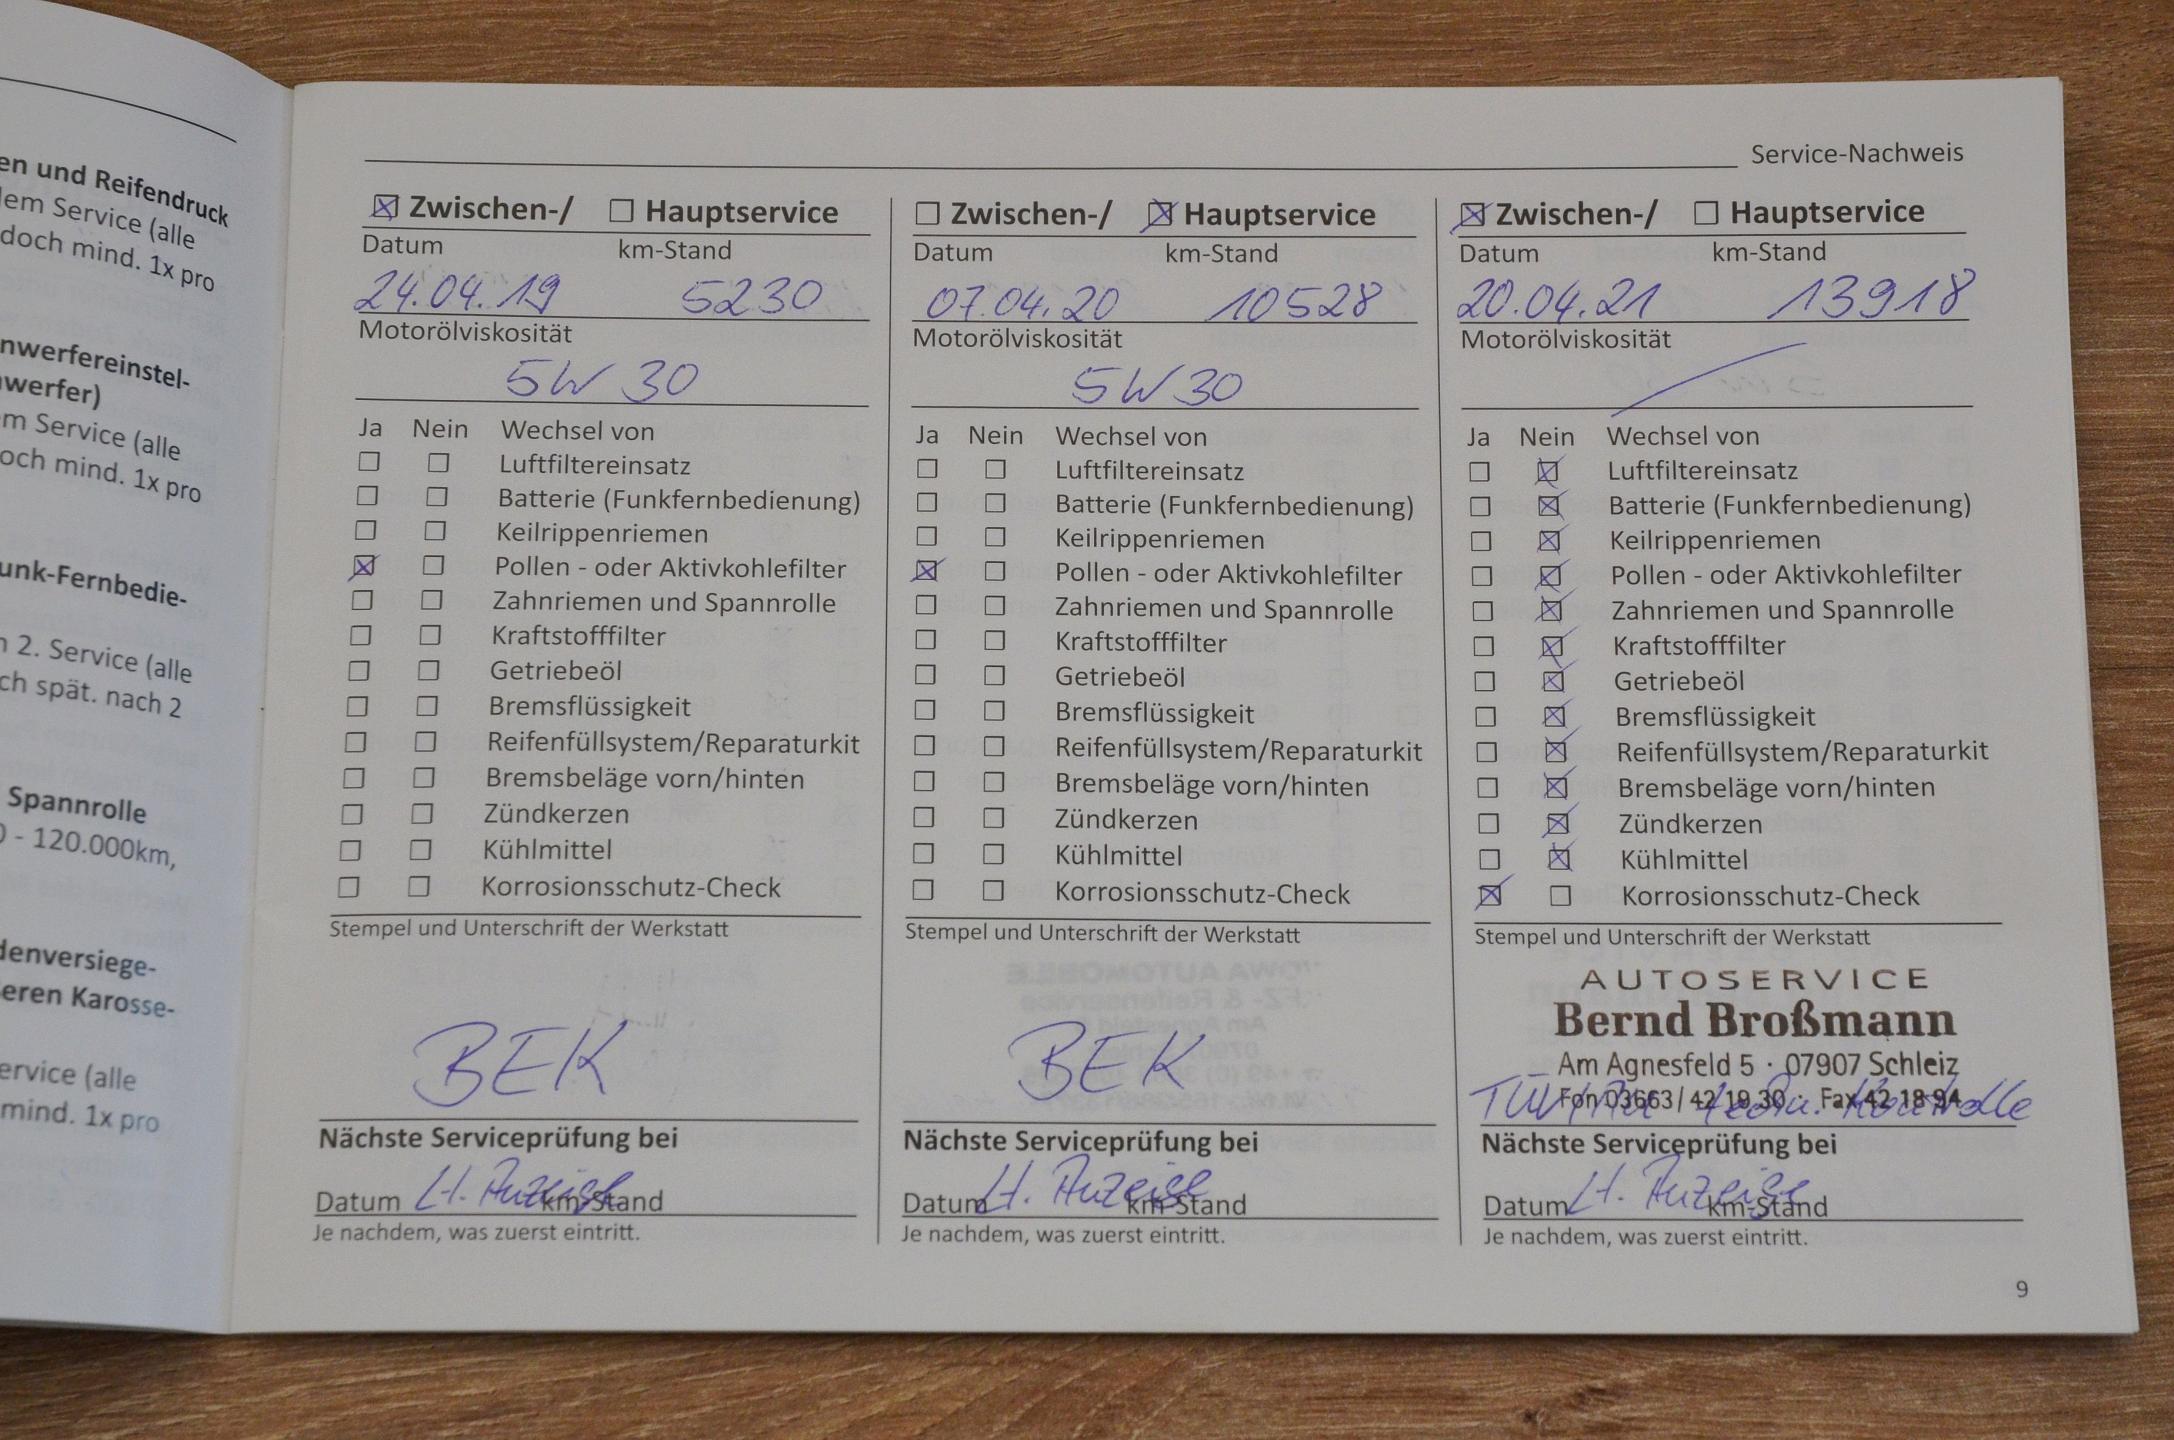 en und Reifendruck
dem Service (alle
doch mind. 1x pro
nwerfereinstel-
werfer)
m Service (alle
och mind. 1x pro
unk-Fernbedie-
2. Service (alle
ch spät. nach 2
Spannrolle
0 - 120.000km,
denversiege-
eren Karosse-
ervice (alle
mind. 1x pro
Service-Nachweis
☒ Zwischen-/ ☐ Hauptservice
Datum km-Stand
24.04.19 5230
Motorölviskosität
5W30
Ja Nein Wechsel von
☐ ☐ Luftfiltereinsatz
☐ ☐ Batterie (Funkfernbedienung)
☐ ☐ Keilrippenriemen
☒ ☐ Pollen - oder Aktivkohlefilter
☐ ☐ Zahnriemen und Spannrolle
☐ ☐ Kraftstofffilter
☐ ☐ Getriebeöl
☐ ☐ Bremsflüssigkeit
☐ ☐ Reifenfüllsystem/Reparaturkit
☐ ☐ Bremsbeläge vorn/hinten
☐ ☐ Zündkerzen
☐ ☐ Kühlmittel
☐ ☐ Korrosionsschutz-Check
Stempel und Unterschrift der Werkstatt
BEK
Nächste Serviceprüfung bei
Datum lt. Anzeige km-Stand
Je nachdem, was zuerst eintritt.
☐ Zwischen-/ ☒ Hauptservice
Datum km-Stand
07.04.20 10528
Motorölviskosität
5W30
Ja Nein Wechsel von
☐ ☐ Luftfiltereinsatz
☐ ☐ Batterie (Funkfernbedienung)
☐ ☐ Keilrippenriemen
☒ ☐ Pollen - oder Aktivkohlefilter
☐ ☐ Zahnriemen und Spannrolle
☐ ☐ Kraftstofffilter
☐ ☐ Getriebeöl
☐ ☐ Bremsflüssigkeit
☐ ☐ Reifenfüllsystem/Reparaturkit
☐ ☐ Bremsbeläge vorn/hinten
☐ ☐ Zündkerzen
☐ ☐ Kühlmittel
☐ ☐ Korrosionsschutz-Check
Stempel und Unterschrift der Werkstatt
BEK
Nächste Serviceprüfung bei
Datum lt. Anzeige km-Stand
Je nachdem, was zuerst eintritt.
☒ Zwischen-/ ☐ Hauptservice
Datum km-Stand
20.04.21 13918
Motorölviskosität
Ja Nein Wechsel von
☐ ☒ Luftfiltereinsatz
☐ ☒ Batterie (Funkfernbedienung)
☐ ☒ Keilrippenriemen
☐ ☒ Pollen - oder Aktivkohlefilter
☐ ☒ Zahnriemen und Spannrolle
☐ ☒ Kraftstofffilter
☐ ☒ Getriebeöl
☐ ☒ Bremsflüssigkeit
☐ ☒ Reifenfüllsystem/Reparaturkit
☐ ☒ Bremsbeläge vorn/hinten
☐ ☒ Zündkerzen
☐ ☒ Kühlmittel
☒ ☐ Korrosionsschutz-Check
Stempel und Unterschrift der Werkstatt
AUTOSERVICE
Bernd Broßmann
Am Agnesfeld 5 · 07907 Schleiz
Fon 03663 / 42 19 30 · Fax 42 18 94
TÜV Kontrolle
Nächste Serviceprüfung bei
Datum lt. Anzeige km-Stand
Je nachdem, was zuerst eintritt.
9